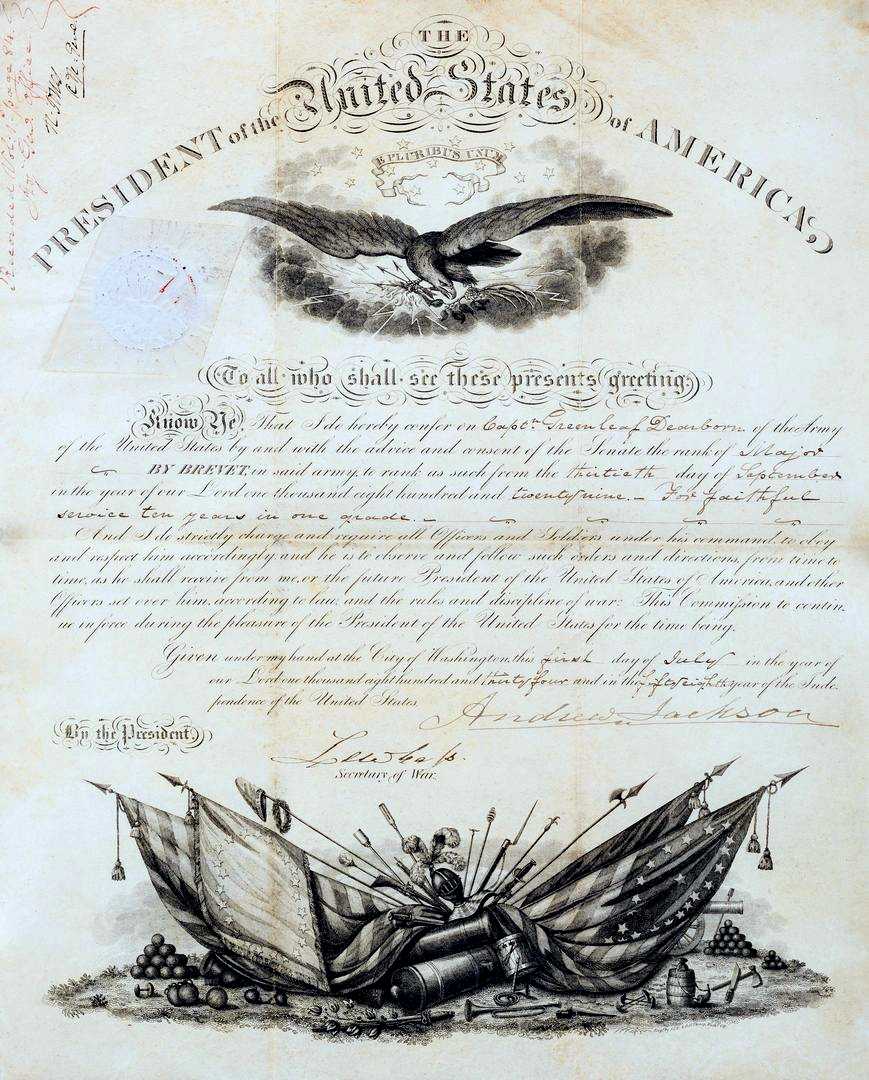 THE
United States
PRESIDENT of the of AMERICA,
E PLURIBUS UNUM
To all who shall see these presents greeting:
Know Ye, That I do hereby confer on Capt. Greenleaf Dearborn of the Army
of the United States by and with the advice and consent of the Senate the rank of Major
BY BREVET, in said army, to rank as such from the thirtieth day of September
in the year of our Lord one thousand eight hundred and twenty nine. – For faithful
service ten years in one grade. –
And I do strictly charge and require all Officers and Soldiers under his command, to obey
and respect him accordingly: and he is to observe and follow such orders and directions, from time to
time, as he shall receive from me, or the future President of the United States of America, and other
Officers set over him, according to law, and the rules and discipline of war: This Commission to contin-
ue in force during the pleasure of the President of the United States for the time being.
Given under my hand at the City of Washington, this first day of July in the year of
our Lord one thousand eight hundred and thirty four and in the fifty eighth year of the Inde-
pendence of the United States.
Andrew Jackson
By the President,
Lew Cass.
Secretary of War.